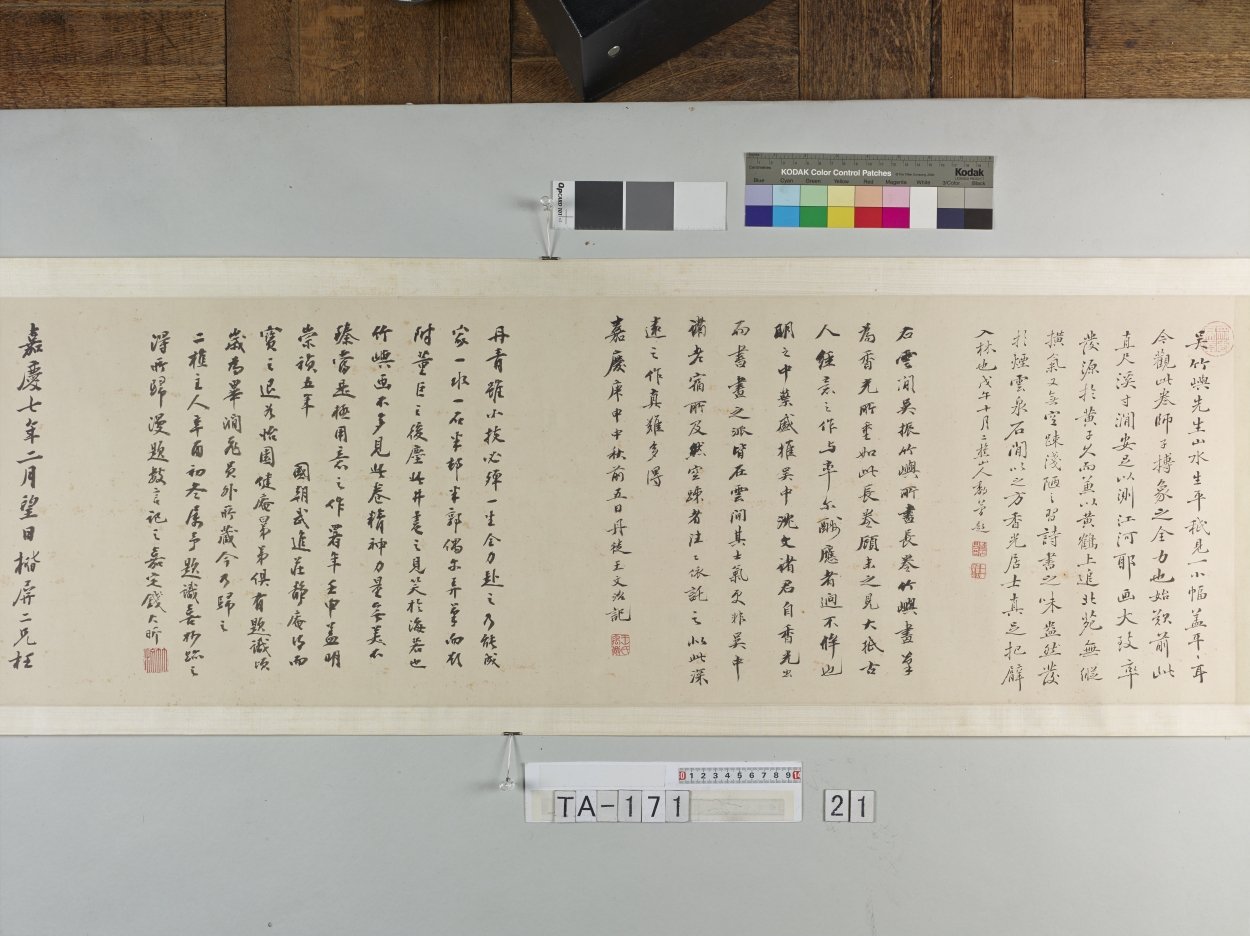 吳竹嶼先生山水生平秪見一小幅葢平平耳
今觀此卷師子搏象之全力也始歎前此
直尺溪寸澗安足以測江河耶画大致率
發源於黃子久而兼以黃鶴上追北苑無縱
橫氣又無空疎淺陋之習詩書之味盎然發
於煙雲泉石間以之方香光居士真足把臂
入林也戊午十月二樵山人
右雲間吳振竹嶼所畫長卷竹嶼畫筆
為香光所重如此長卷顧未之見大抵古
人經意之作与率尔酬應者迥不侔也
明之中葉盛推吳中沈文諸君自香光出
而書畫之派皆在雲間其士氣更非吳中
諸老宿所及然空疎者往往依託之以此深
遠之作真難多得
嘉慶庚申中秋前五日丹徒王文治記
丹青雖小技必殫一生全力赴之乃能成
家一水一石半邨半郭偶尔弄筆而欲
附董巨之後塵此井蛙之見笑於海若也
竹嶼画不多見此卷精神力量無美不
臻當是極用意之作署年壬申葢明
崇禎五年 國朝武進莊靜庵得而
寶之退谷怡園健庵昆弟俱有題識頃
歲為畢澗飛員外所藏今乃歸之
二樵主人年酉初冬屬予題識喜物蹤之
得所歸漫題數言記之嘉定錢大昕
嘉慶七年二月望日楷屏二兄枉
KODAK Color Control Patches
Kodak
Blue Cyan Green Yellow Red Magenta White 3/Color Black
QPCARD 101
0 1 2 3 4 5 6 7 8 9
TA-171
21